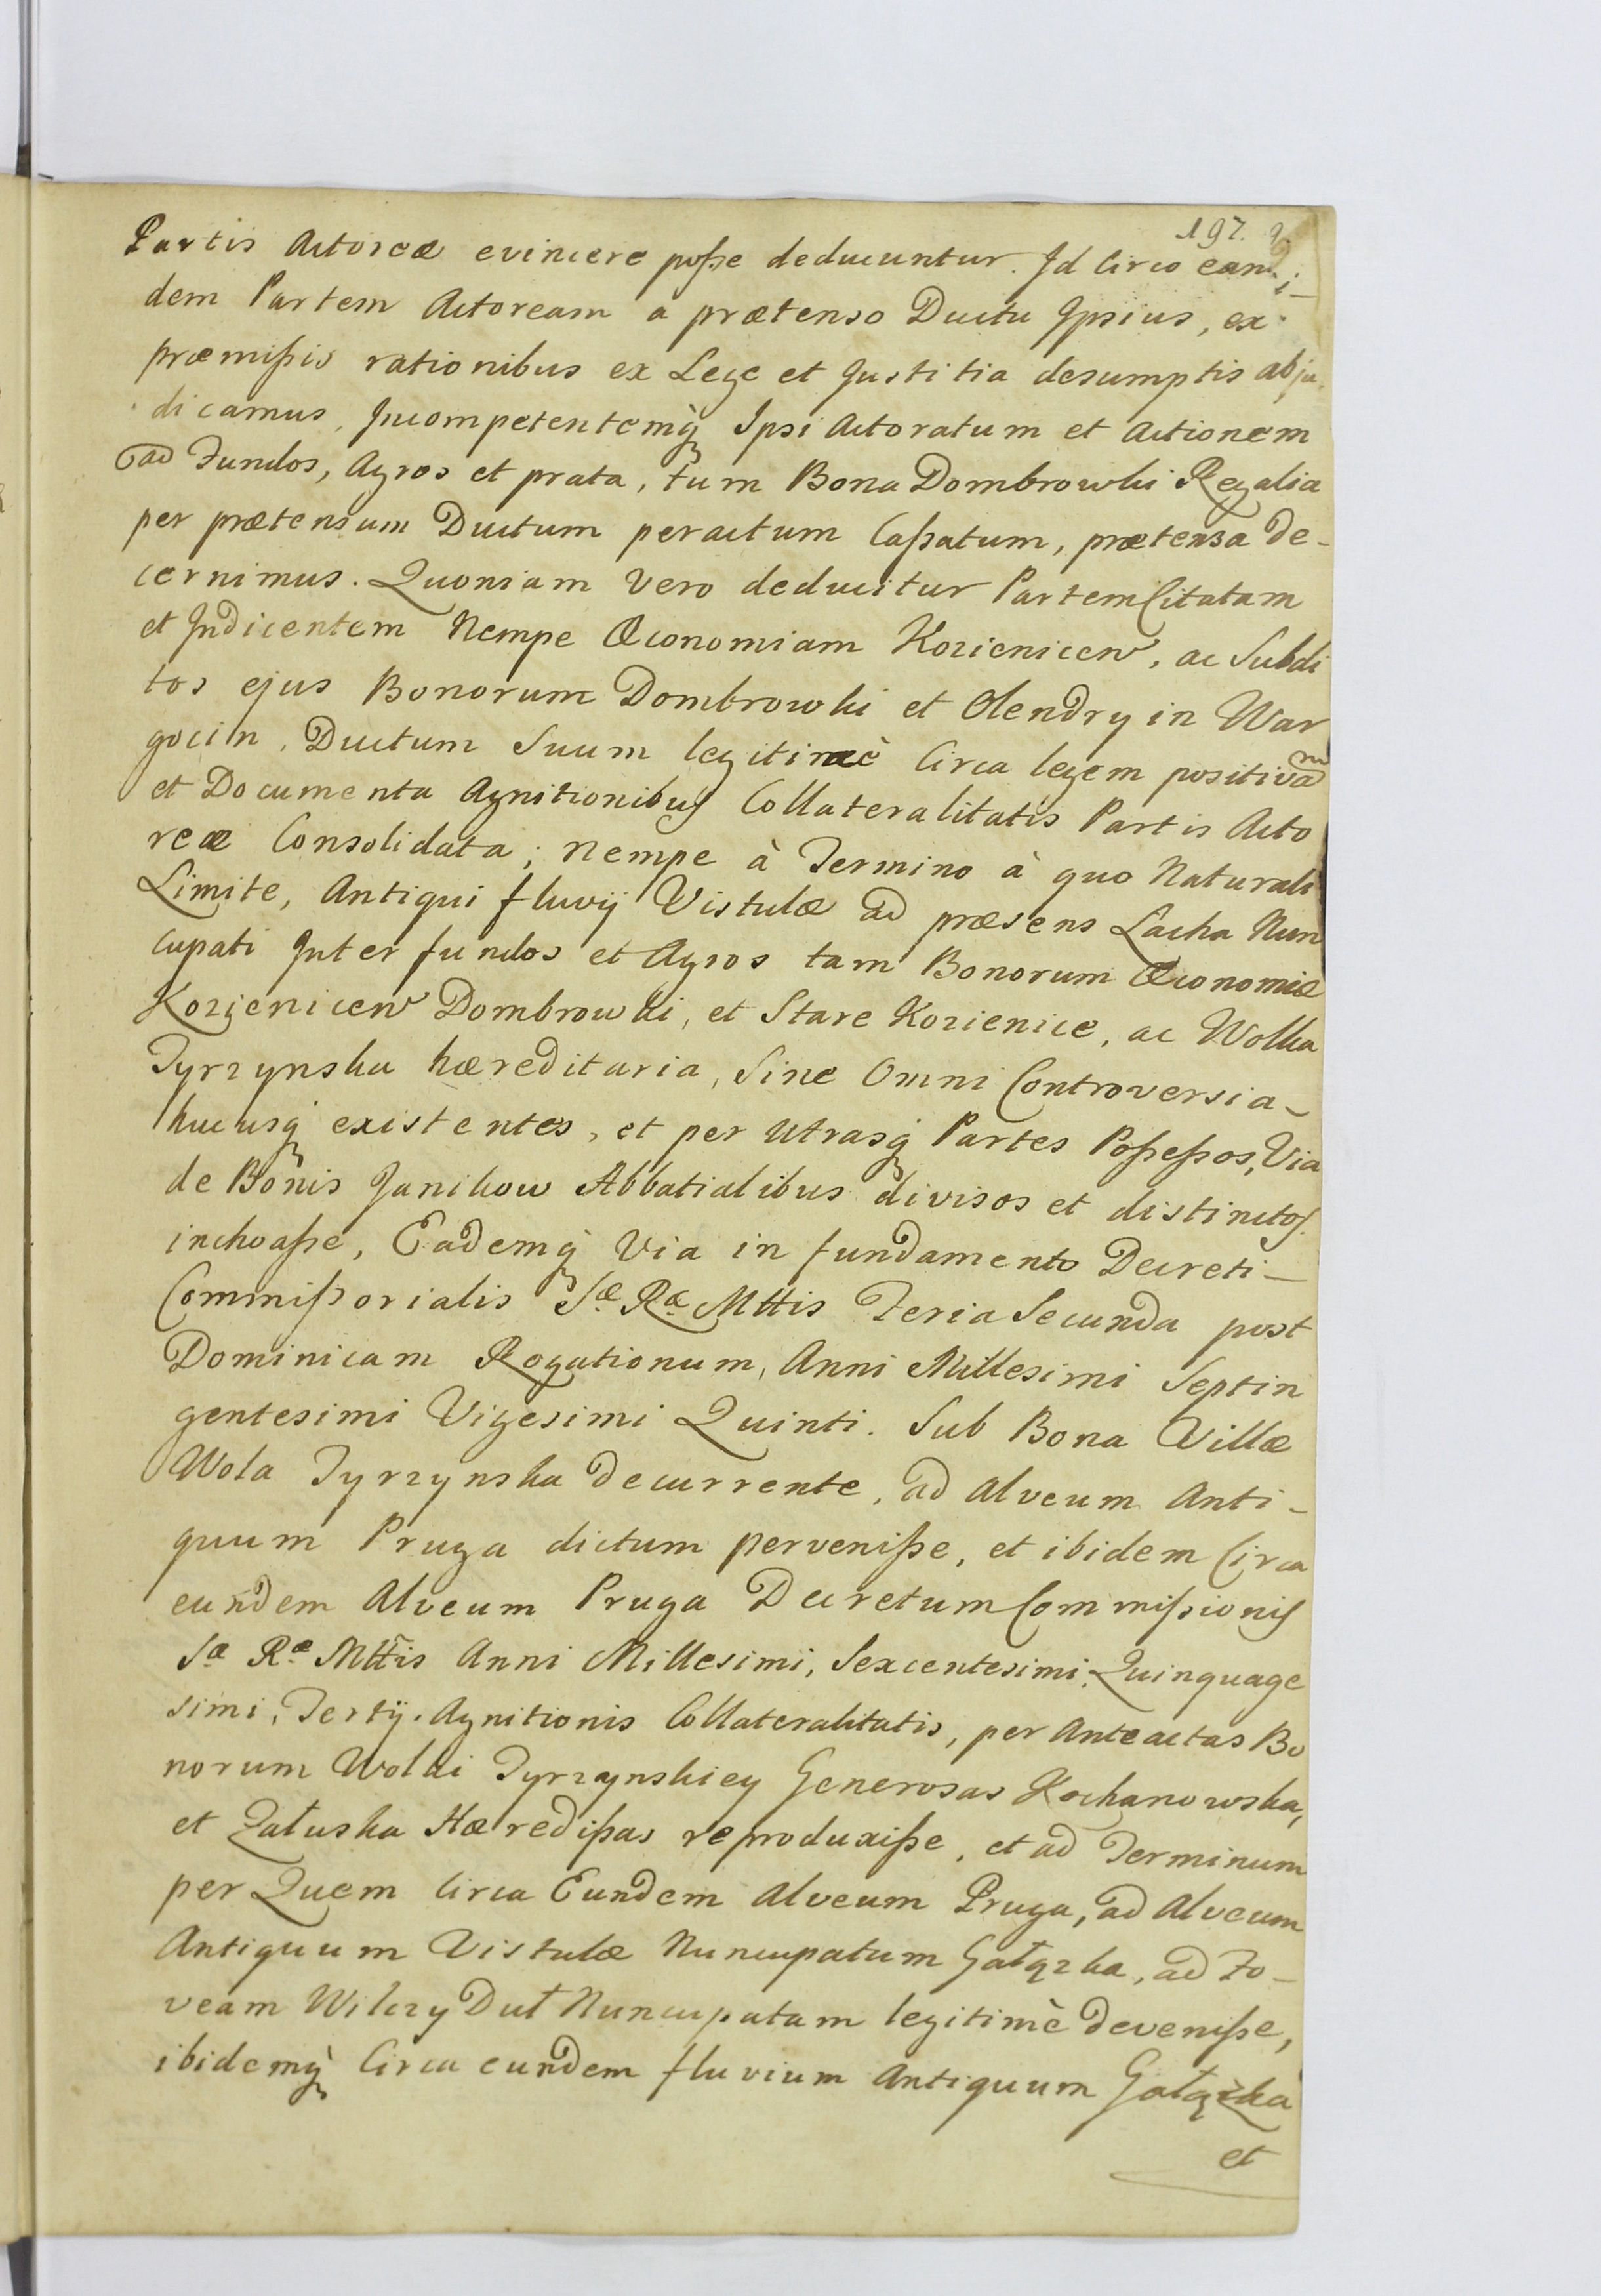 197.
Partis Actoreæ evincere poſse deducuntur. Id Circo ean
dem Partem Actoream a prætenso Ductu Ipsius, ex
præmiſsis rationibus ex Lege et Justitia desumptis abju
dicamus, Incompetentemq̀ Ipsi Actoratum et Actionem
ad Fundos, Agros et prata, tum Bona Dombrowki Regalia
per prætensum Ductum peractum Caſsatum, prætensa De-
cernimus. Quoniam vero deducitur Partem Citatam
et Indicentem Nempe Œconomiam Kozienicen, ac Subdi
tos ejus Bonorum Dombrowki et Olendry in War
gocin, Ductum Suum legitimè Circa legem positivam
et Documenta Agnitionibus Collateralitatis Partis Acto
reæ Consolidata; nempe à Termino à quo Naturali
Limite, Antiqui fluvij Vistulæ ad præsens Łacha Nun
cupati Inter fundos et Agros tam Bonorum Œconomiæ
Kozienicen Dombrowki, et Stare Kozienice, ac Wolka
Tyrzynska hæreditaria, Sine Omni Controversia-
hucusq̀ existentes, et per Utrasq̀ Partes Poſseſsos, Via
de Bonis Janikow Abbatialibus divisos et distinctos.
inchoaſse, Eademq̀ Via in fundamento Decreti-
Commiſsorialis Sæ Ræ Mttis Feria Secunda post
Dominicam Rogationum, Anni Millesimi Septin
gentesimi Vigesimi Quinti. Sub Bona Villæ
Wola Tyrzynska decurrente, ad Alveum Anti-
quum Pruga dictum perveniſse, et ibidem Circa
eundem Alveum Pruga Decretum Commiſsionis
Sæ Ræ Mttis Anni Millesimi, Sexcentesimi, Quinquage
simi, Tertij. Agnitionis Collateralitatis, per Anteactas Bo
norum Wolki Tyrzynskiey Generosas Kochanowska,
et Załuska Hærediſsas reproduxiſse, et ad Terminum
per Quem Circa Eundem Alveum Pruga, ad Alveum
Antiquum Vistulæ Nuncupatum Gałązka, ad Fo-
veam Wilczy Duł Nuncupatam legitimè deveniſse,
ibidemq̀ Circa eundem fluvium Antiquum Gałązka
et